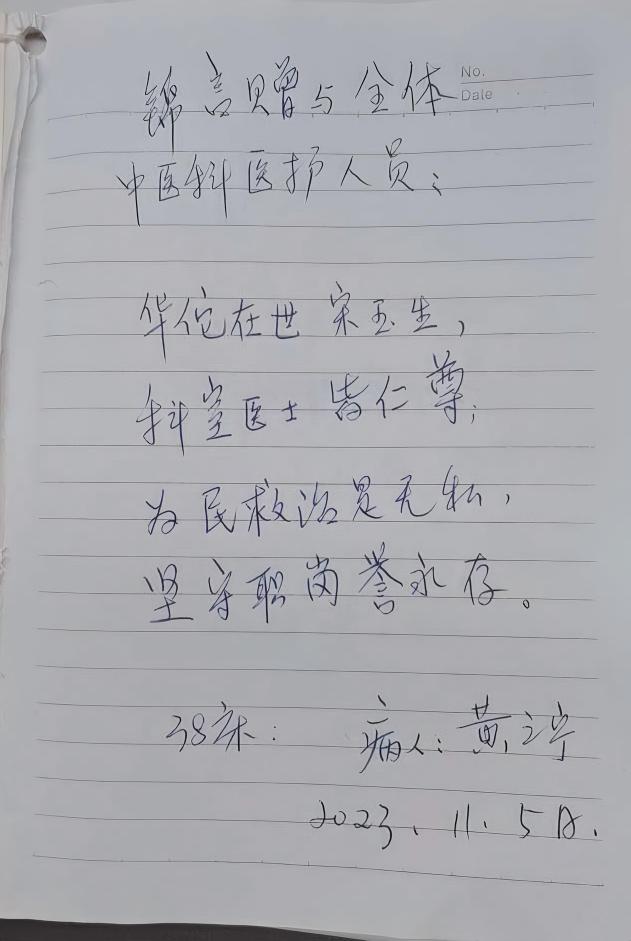 No.
Date
锦言赠与全体
中医科医护人员：
华佗在世宋玉生，
科室医士皆仁尊；
为民救治是无私，
坚守职岗誉永存。
38床： 病人：黄
2023.11.5日.